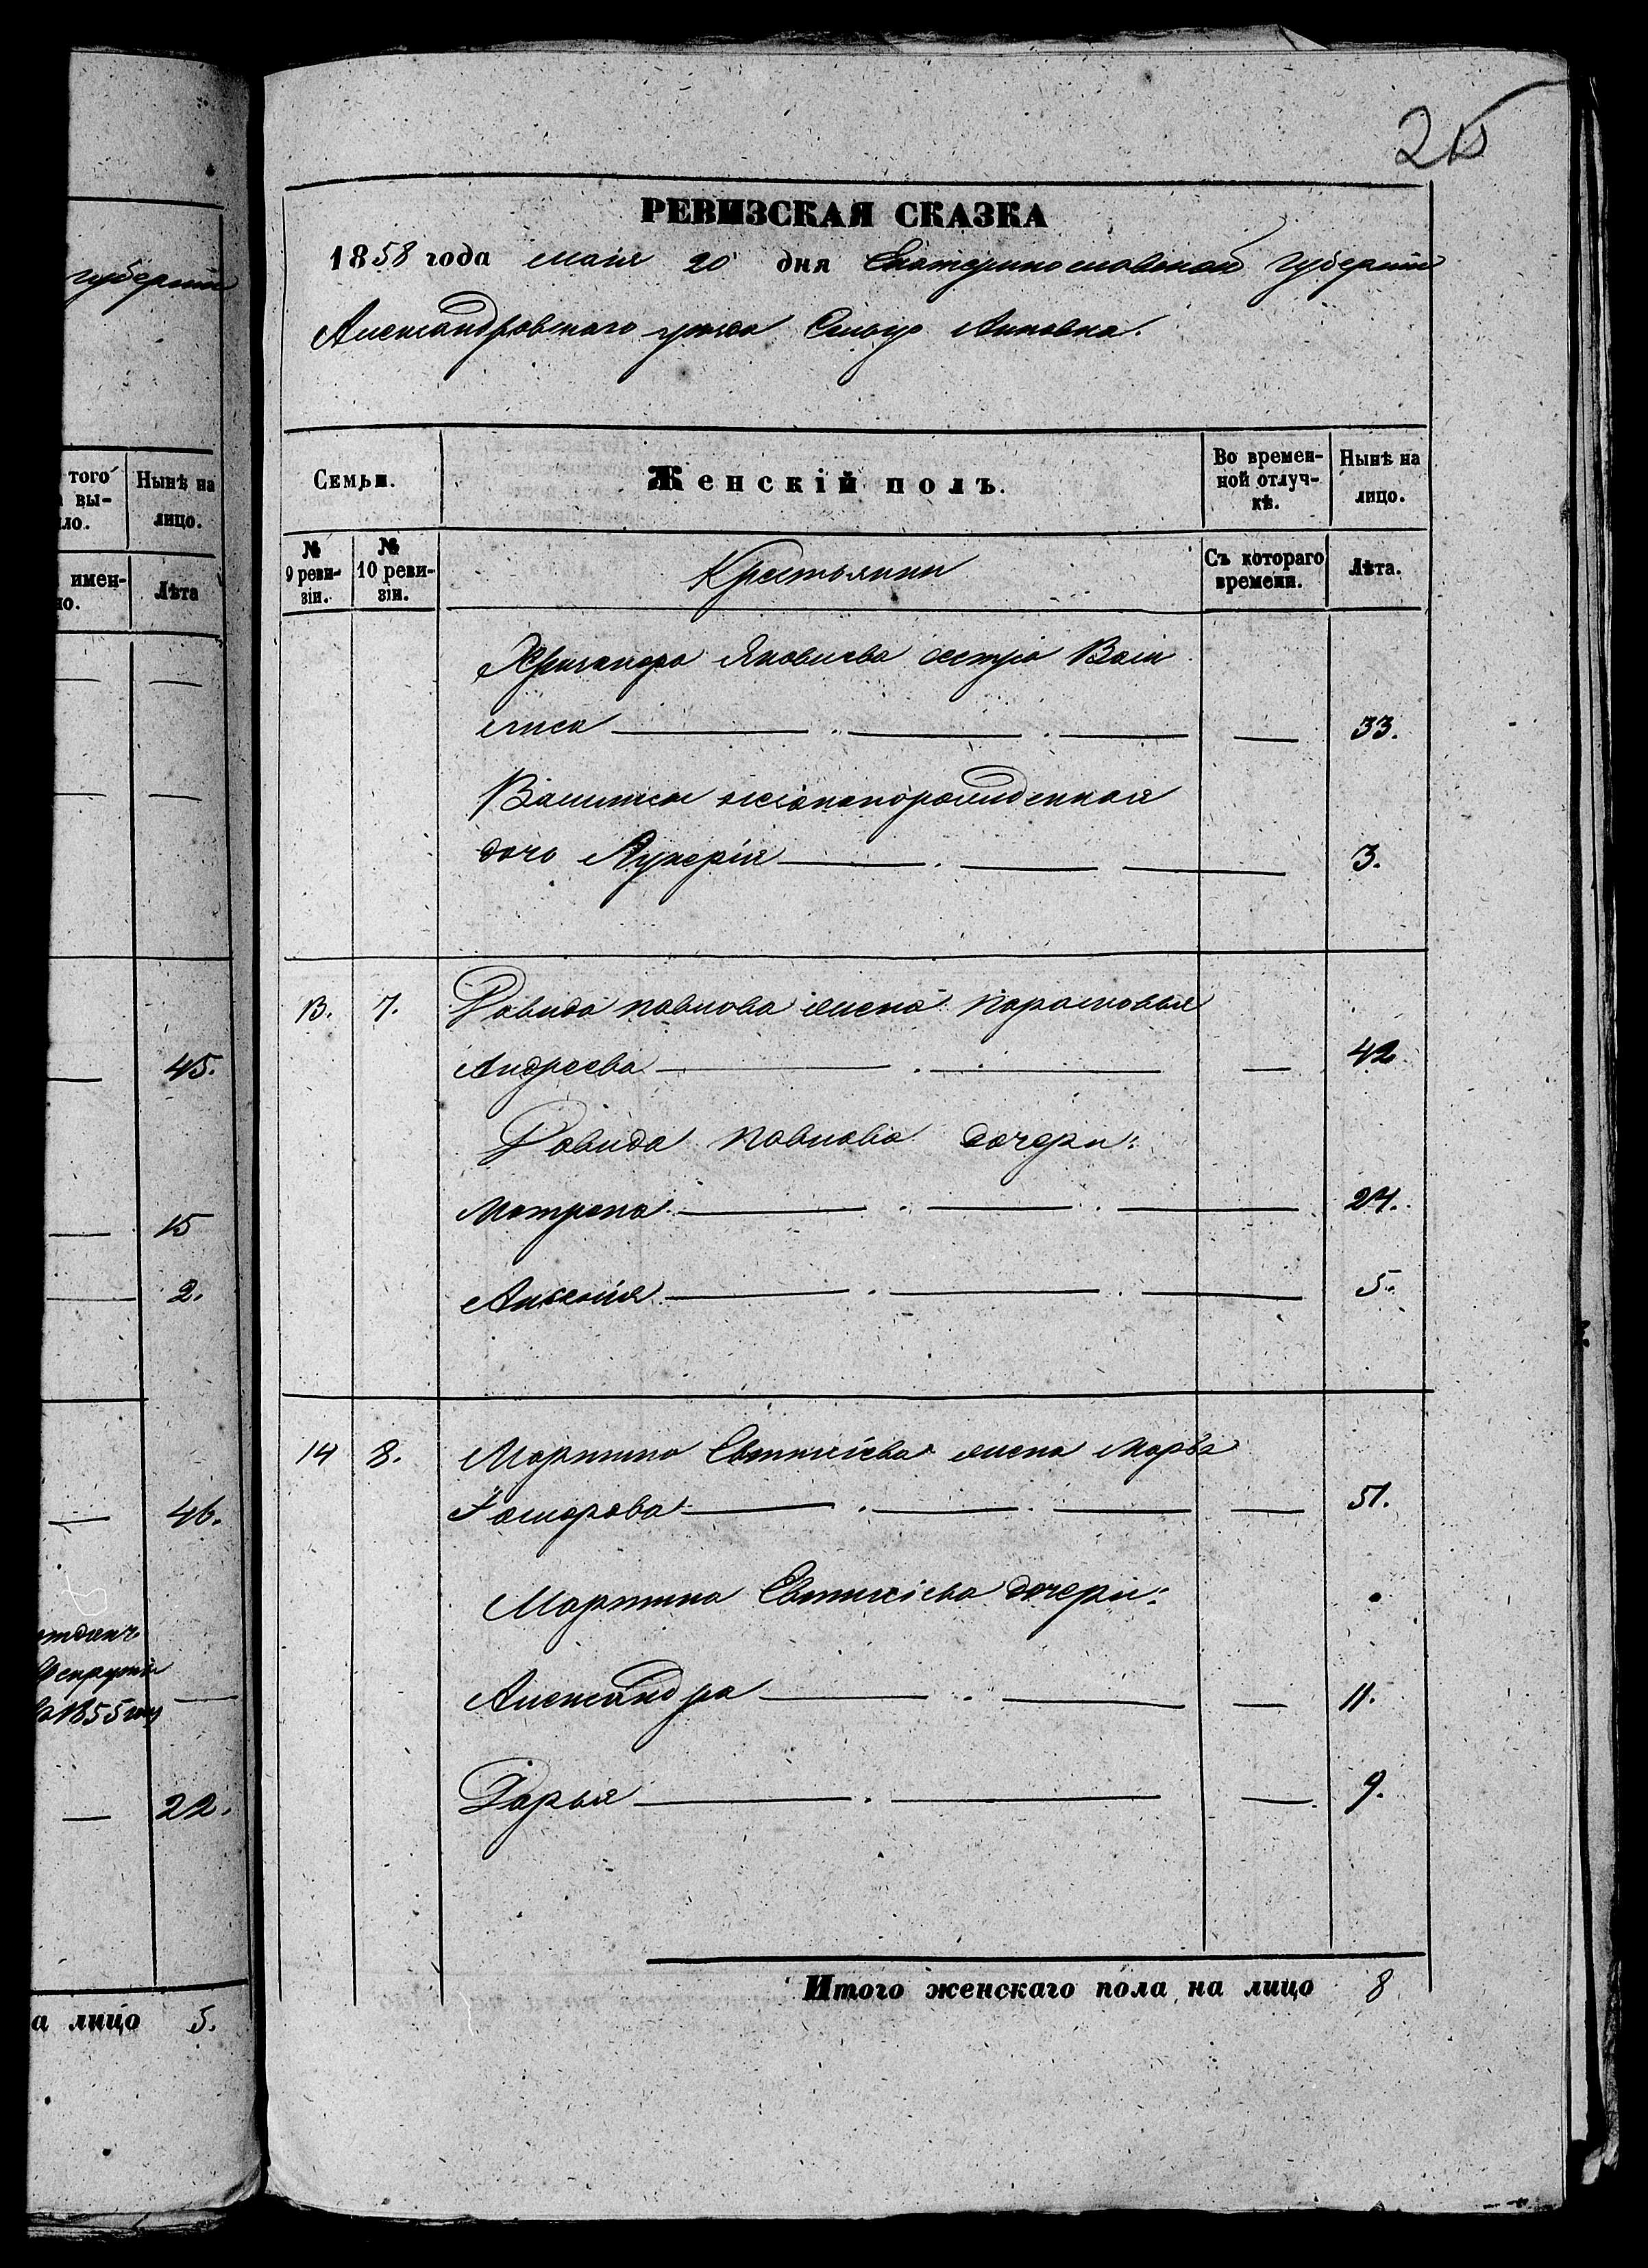 губернии
того Нынѣ на
вы-
ло. лицо.
имен- Лѣта
но.
45.
15
2.
46.
1855 году
22.
а лицо 5.
25
РЕВИЗСКАЯ СКАЗКА
1858 года маія 20 дня Екатеринославской губернии
Александровскаго уѣзда Сельцо Анновка.
Семьи. Женскій полъ. Во времен- Нынѣ на
ной отлуч- лицо.
кѣ.
№ №
9 реви- 10 реви- Крестьянки Съ котораго Лѣта.
зіи. зіи. времени.
Яковлева сестра Васи
лиса 33.
Василисы незаконорожденная
дочь Лукерія 3.
13. 7. Давида Павлова жена Парасковья
Андреева 42
Давида Павлова дочери:
Матрона 24.
Анксенія 5.
14 8. Мартина Евтихіева жена Марѳа
51.
Мартина Евтихіева дочери:
Александра 11.
Дарья 9.
Итого женскаго пола на лицо 8